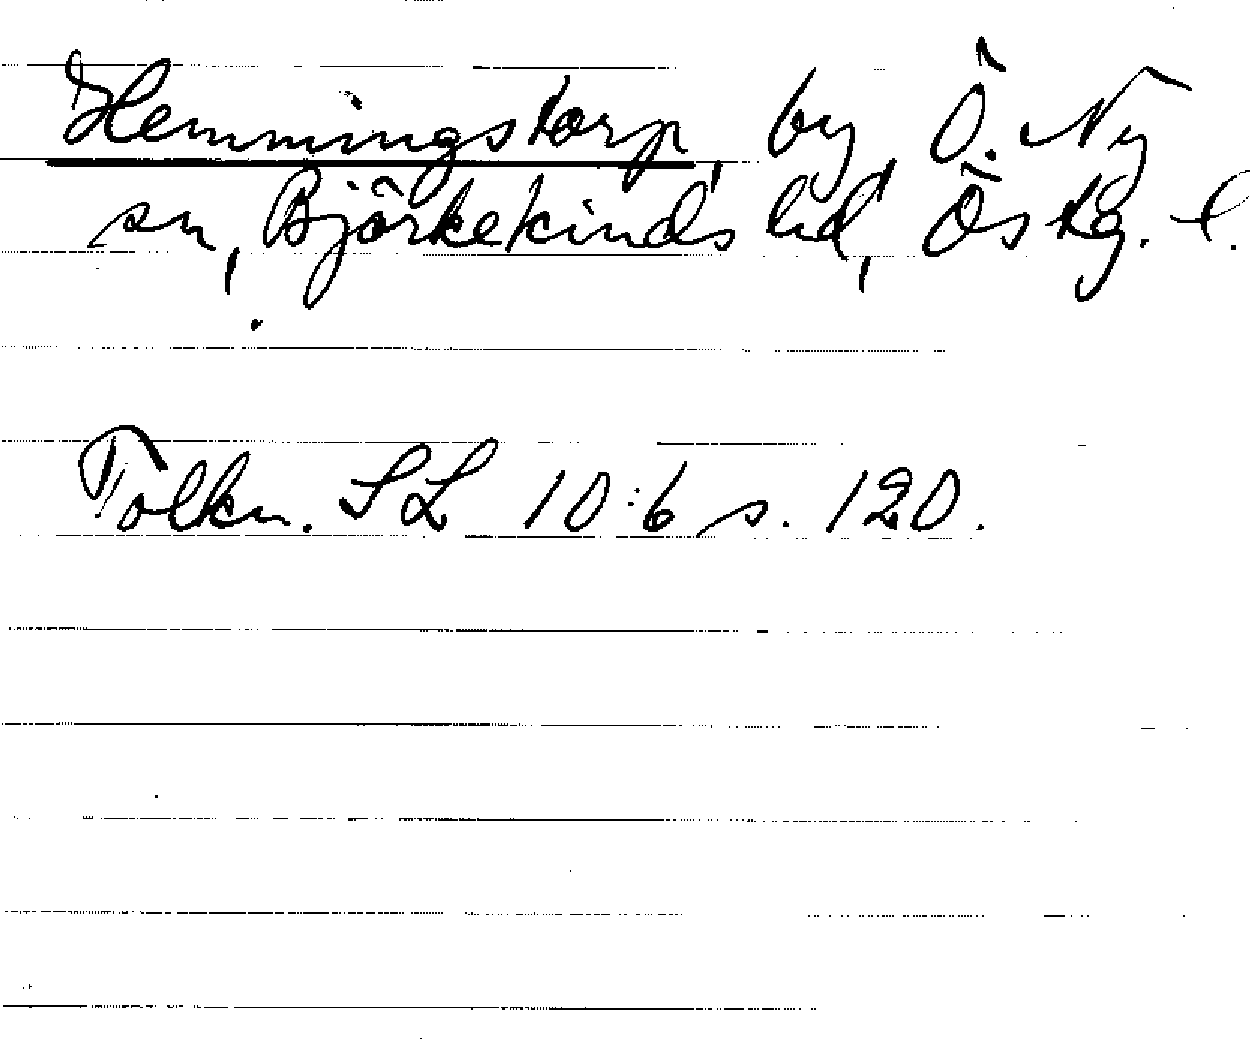 Hemmingstorp, by, Ö. Ny
sn, Björkekinds hd, Östg. l.
Tolkn. SL 10:6 s. 120.